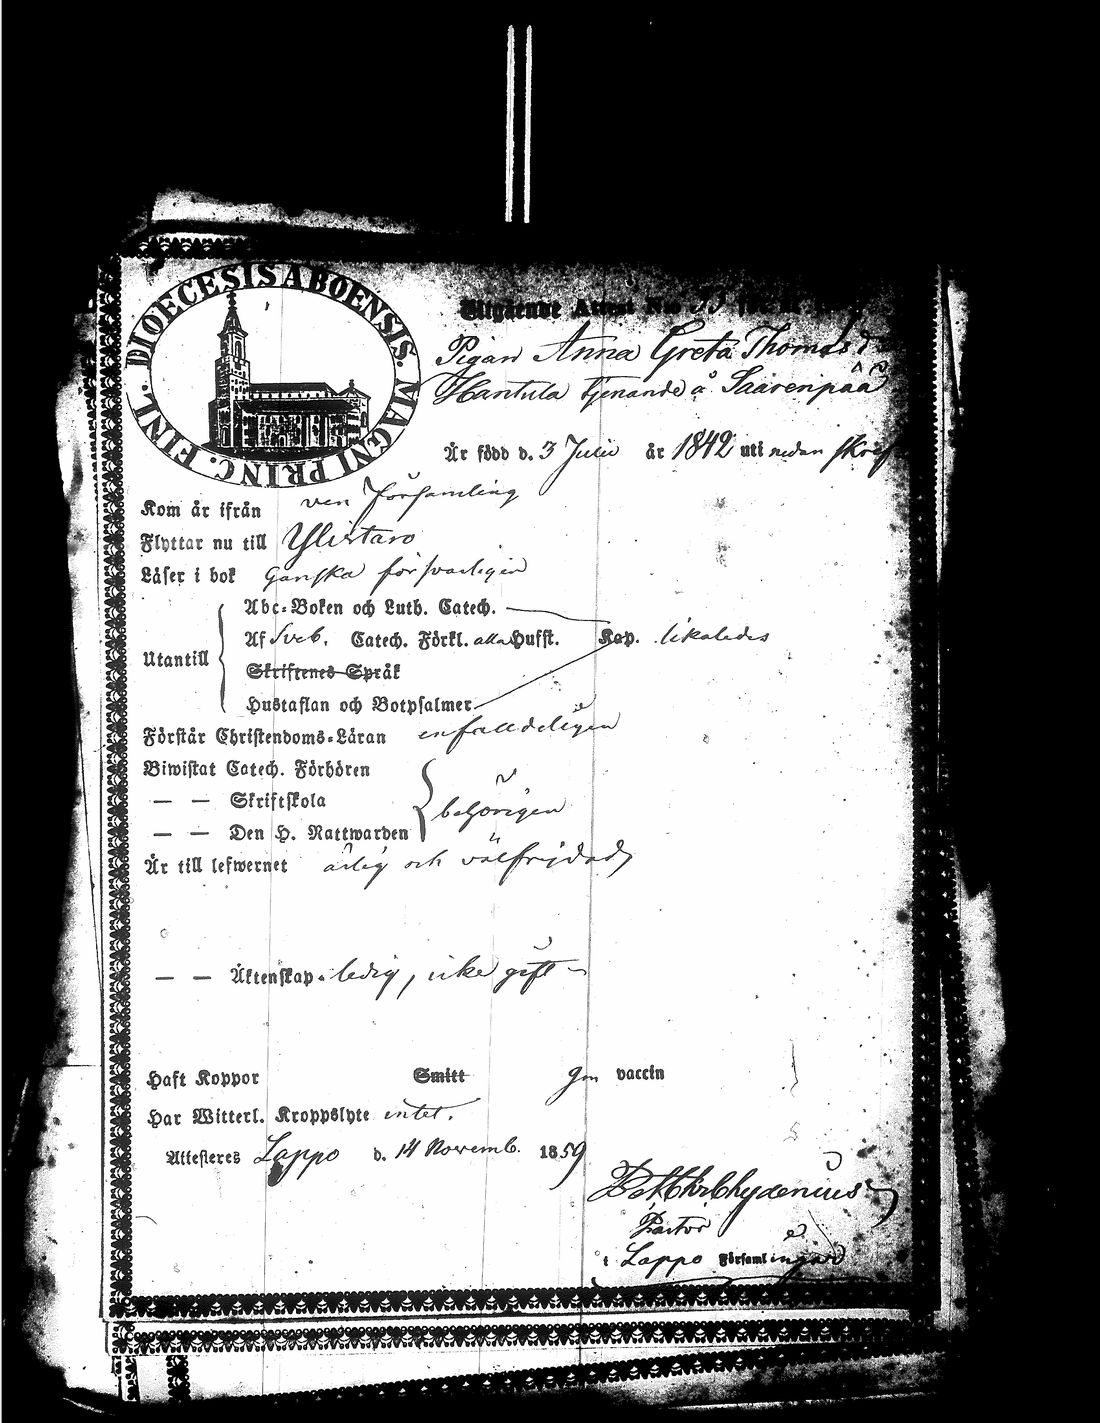 DIOECESIS ABOENSIS. MAGNI PRINC. FINL.
Utgående Attest N:o 53
Pigan Anna Greta Thomasd:r
Hantula tjenande å Saarenpää
Är född d. 3 Julii år 1842 uti nedan skref
Kom år ifrån församling
Flyttar nu till Ylistaro
Läser i bok ganska försvarligen
Utantill
Abc-Boken och Luth. Catech.
Af Sveb. Catech. Förkl. alla Hufst. Kap. likaledes
Skriftenes Språk
Hustaflan och Botpsalmer
Förstår Christendoms-Läran enfalldeligen
Biwistat Catech. Förhören
— — Skriftskola
behörigen
— — Den H. Nattwarden
Är till lefwernet ärlig och välfrejdad,
— — Äktenskap. ledig, icke gift
Haft Koppor Smitt gm vaccin
Har Witterl. Kroppslyte intet.
Attesteres Lappo d. 14 Novemb. 1859
Chydenius
Pastor
i Lappo Församl